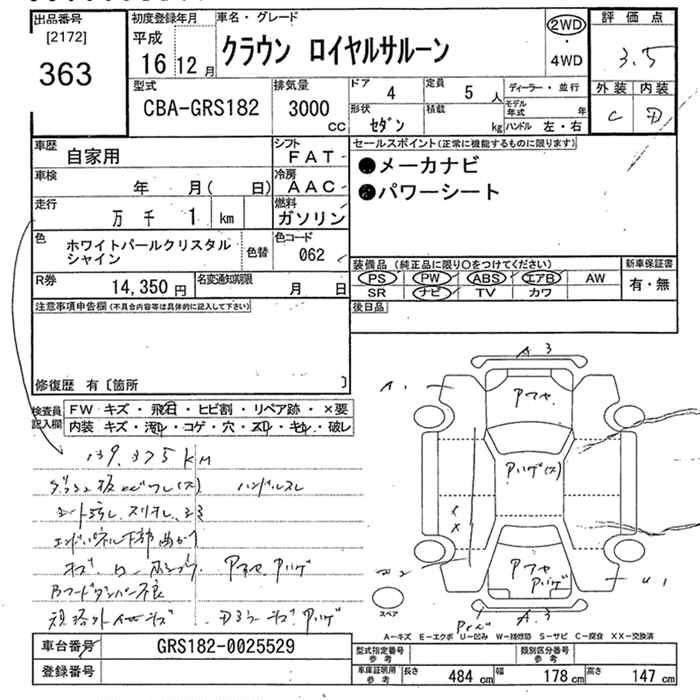 出品番号
[2172]
363
初度登録年月
平成
16 12 月
車名・グレード
クラウン ロイヤルサルーン
2WD
・
4WD
評価点
3.5
外装 内装
C D
型式
CBA-GRS182
排気量
3000
CC
ドア 4
定員 5 人
ディーラー・並行
形状 セダン
積載 kg
モデル年式 年
ハンドル 左・右
車歴 自家用
シフト FAT
車検 年 月( 日)
冷房 AAC
走行 万 千 1 km
燃料 ガソリン
色 ホワイトパールクリスタル
シャイン
色替
色コード 062
R券 14,350 円
名変通知期限 月 日
セールスポイント(正常に機能するものに限ります)
●メーカナビ
●パワーシート
装備品(純正品に限り○をつけてください)
新車保証書
PS PW ABS エアB AW
SR ナビ TV カワ
有・無
後日品
注意事項申告欄(不具合内容等は具体的に記入して下さい)
修復歴 有〔箇所 〕
検査員記入欄
FW キズ・飛石・ヒビ割・リペア跡・×要
内装 キズ・汚れ・コゲ・穴・スレ・キレ・破レ
139,375 KM
ハンドルスレ
A3
A1
アワヤ
アリゲ(ス)
XX
アワヤ
アリゲ
U1
A3
スペア
A-キズ E-エクボ U-凹み W-補修跡 S-サビ C-腐食 XX-交換済
車台番号 GRS182-0025529
登録番号
型式指定番号
参考
類別区分番号
参考
車庫証明用
参考
長さ 484 cm
幅 178 cm
高さ 147 cm